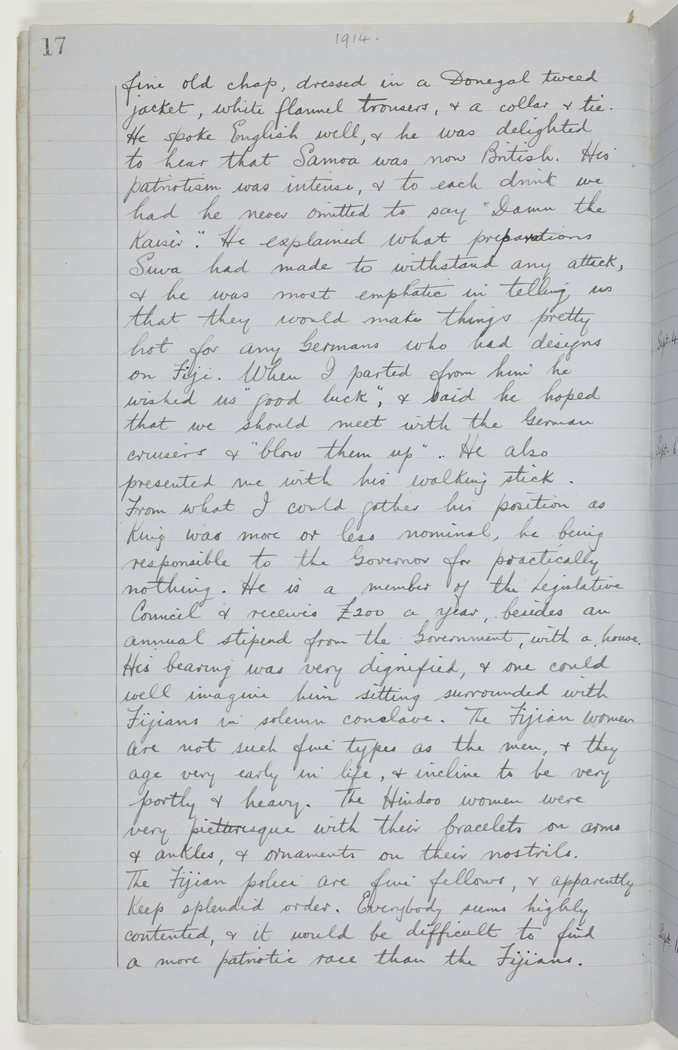 17
1914.
fine old chap, dressed in a Donegal tweed
jacket, white flannel trousers, & a collar & tie.
He spoke English well, & he was delighted
to hear that Samoa was now British. His
patriotism was intense, & to each drink we
had he never omitted to say "Damn the
Kaiser". He explained what preparations
Suva had made to withstand any attack,
& he was most emphatic in telling us
that they would make things pretty
hot for any Germans who had designs
on Fiji. When I parted from him he
wished us "good luck", & said he hoped
that we should meet with the German
cruisers & "blow them up". He also
presented me with his walking stick.
From what I could gather his position as
King was more or less nominal, he being
responsible to the Governor for practically
nothing. He is a member of the Legislative
Council & receives £200 a year, besides an
annual stipend from the Government, with a house.
His bearing was very dignified, & one could
well imagine him sitting surrounded with
Fijians in solemn conclave. The Fijian women
are not such fine types as the men, & they
age very early in life, & incline to be very
portly & heavy. The Hindoo women were
very picturesque with their bracelets on arms
& ankles, & ornaments on their nostrils.
The Fijian police are fine fellows, & apparently
keep splendid order. Everybody seems highly
contented, & it would be difficult to find
a more patriotic race than the Fijians.
Sept. 4
Sept. 6
Sept.